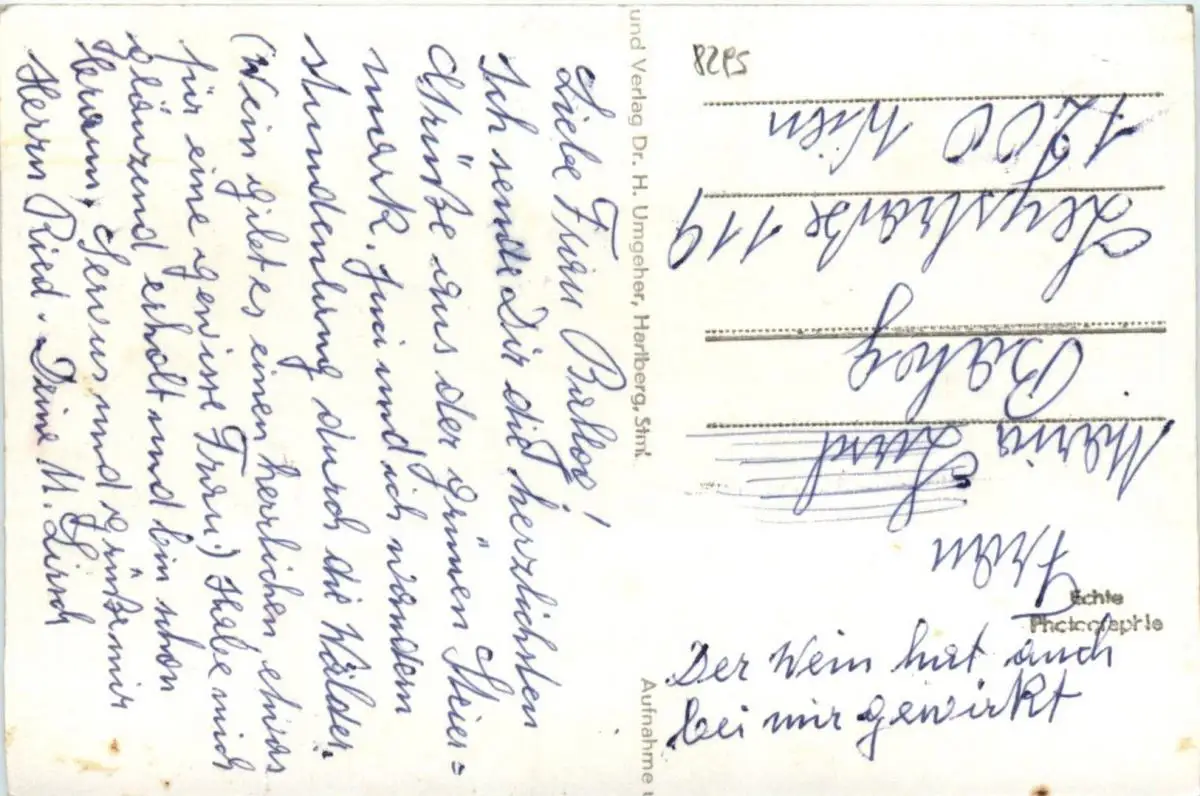 Liebe Frau Bahog!
Ich sende Dir die herzlichsten
Grüße aus der grünen Steier=
mark. Juci und ich wandern
stundenlang durch die Wälder.
(Wein gibt es einen herrlichen, etwas
für eine gewisse Frau.) Habe mich
glänzend erholt und bin schon
braun. Servus und grüße mir
Herrn Ried. Deine M. Lirsch
und Verlag Dr. H. Umgeher, Hartberg, Stmk.
Aufnahme u
8295
Echte
Photographie
Frau
Maria
Bahog
Leystraße 119
1200 Wien
Der Wein hat auch
bei mir gewirkt